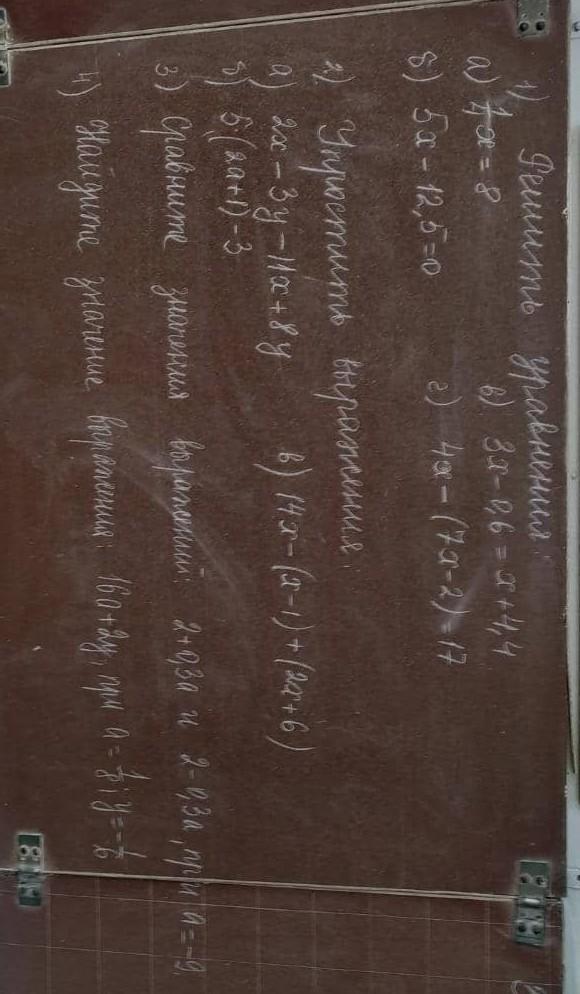 1) Решить уравнения:
а) 7x = 8 в) 3x - 0,6 = x + 4,4
б) 5x - 12,5 = 0 г) 4x - (7x - 2) = 17
2) Упростить выражения:
а) 2x - 3y - 11x + 8y в) 14x - (x - 1) + (2x + 6)
б) 5(2a + 1) - 3
3) Сравните значения выражений: 2 + 0,3a и 2 - 0,3a, при a = -9.
4) Найдите значение выражения: 16a + 2y, при a = 1/8; y = -1/6